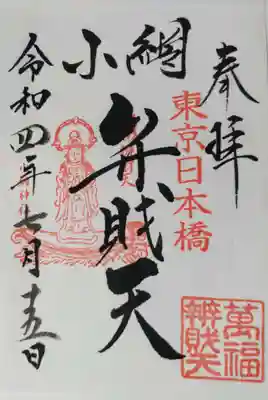 奉拝
東京日本橋
小網
弁財天
令和四年七月十五日
萬福
辨財天